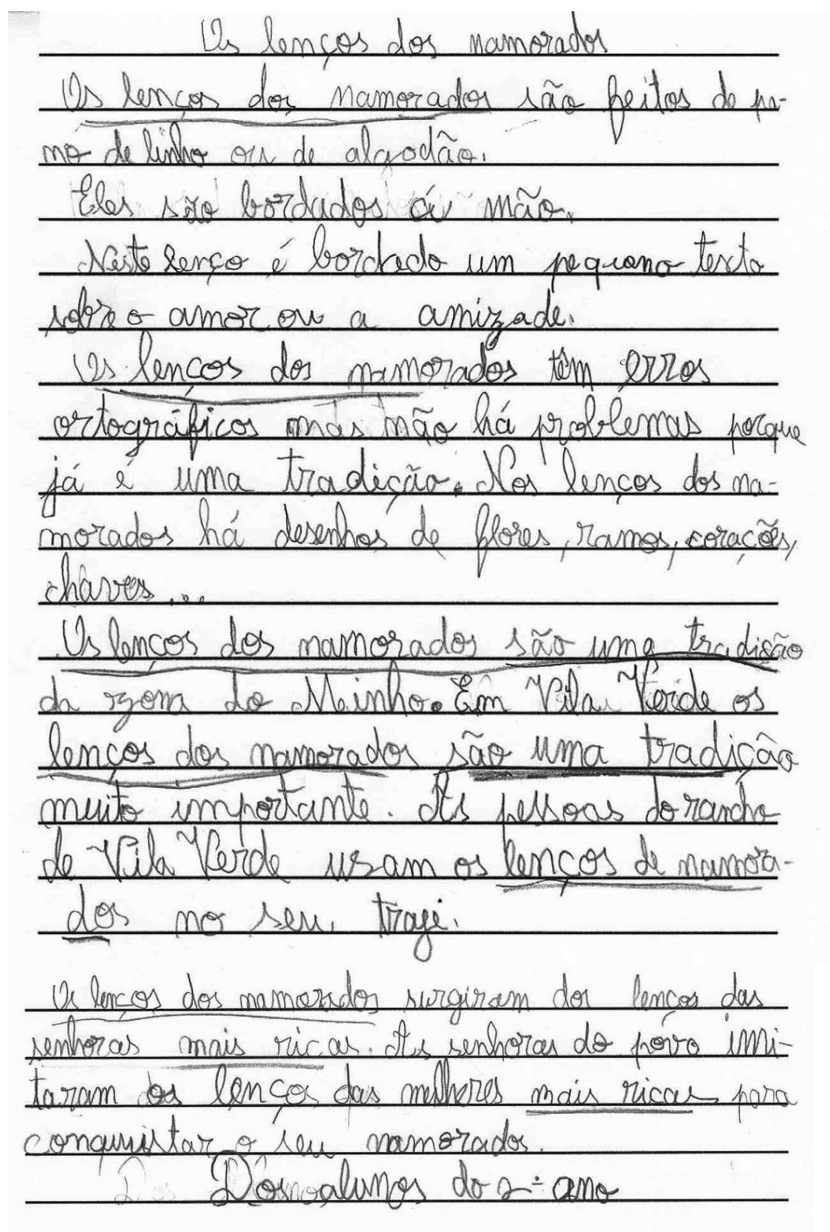 Os lenços dos namorados
Os lenços dos namorados são feitos de pa-
no de linho ou de algodão.
Eles são bordados à mão.
Neste lenço é bordado um pequeno texto
sobre o amor ou a amizade.
Os lenços dos namorados têm erros
ortográficos mas não há problemas porque
já é uma tradição. Nos lenços dos na-
morados há desenhos de flores, ramos, corações,
chaves...
Os lenços dos namorados são uma tradição
da zona do Minho. Em Vila Verde os
lenços dos namorados são uma tradição
muito importante. As pessoas do rancho
de Vila Verde usam os lenços de namora-
dos no seu traje.
Os lenços dos namorados surgiram dos lenços das
senhoras mais ricas. As senhoras do povo imi-
taram os lenços das mulheres mais ricas para
conquistar o seu namorados.
Dos alunos do 2º ano